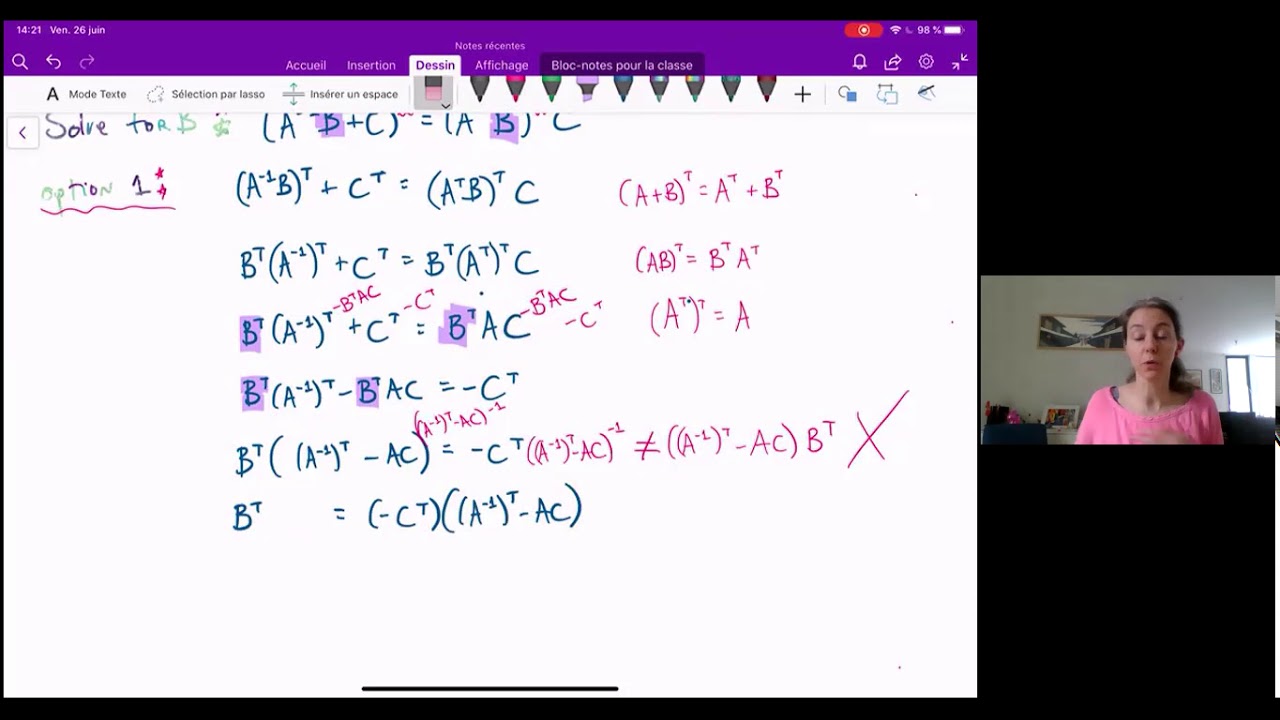 14:21 Ven. 26 juin 98 %
Notes récentes
Accueil Insertion Dessin Affichage Bloc-notes pour la classe
A Mode Texte Sélection par lasso Insérer un espace
Solve for B : (A⁻¹B+C)ᵀ = (AᵀB)ᵀ C
option 1: (A⁻¹B)ᵀ + Cᵀ = (AᵀB)ᵀ C (A+B)ᵀ = Aᵀ + Bᵀ
Bᵀ(A⁻¹)ᵀ + Cᵀ = Bᵀ(Aᵀ)ᵀ C (AB)ᵀ = BᵀAᵀ
-BᵀAC -Cᵀ -BᵀAC
Bᵀ(A⁻¹)ᵀ + Cᵀ = BᵀAC -Cᵀ (Aᵀ)ᵀ = A
Bᵀ(A⁻¹)ᵀ - BᵀAC = -Cᵀ
((A⁻¹)ᵀ-AC)⁻¹
Bᵀ((A⁻¹)ᵀ - AC) = -Cᵀ((A⁻¹)ᵀ-AC)⁻¹ ≠ ((A⁻¹)ᵀ - AC) Bᵀ
Bᵀ = (-Cᵀ)((A⁻¹)ᵀ - AC)